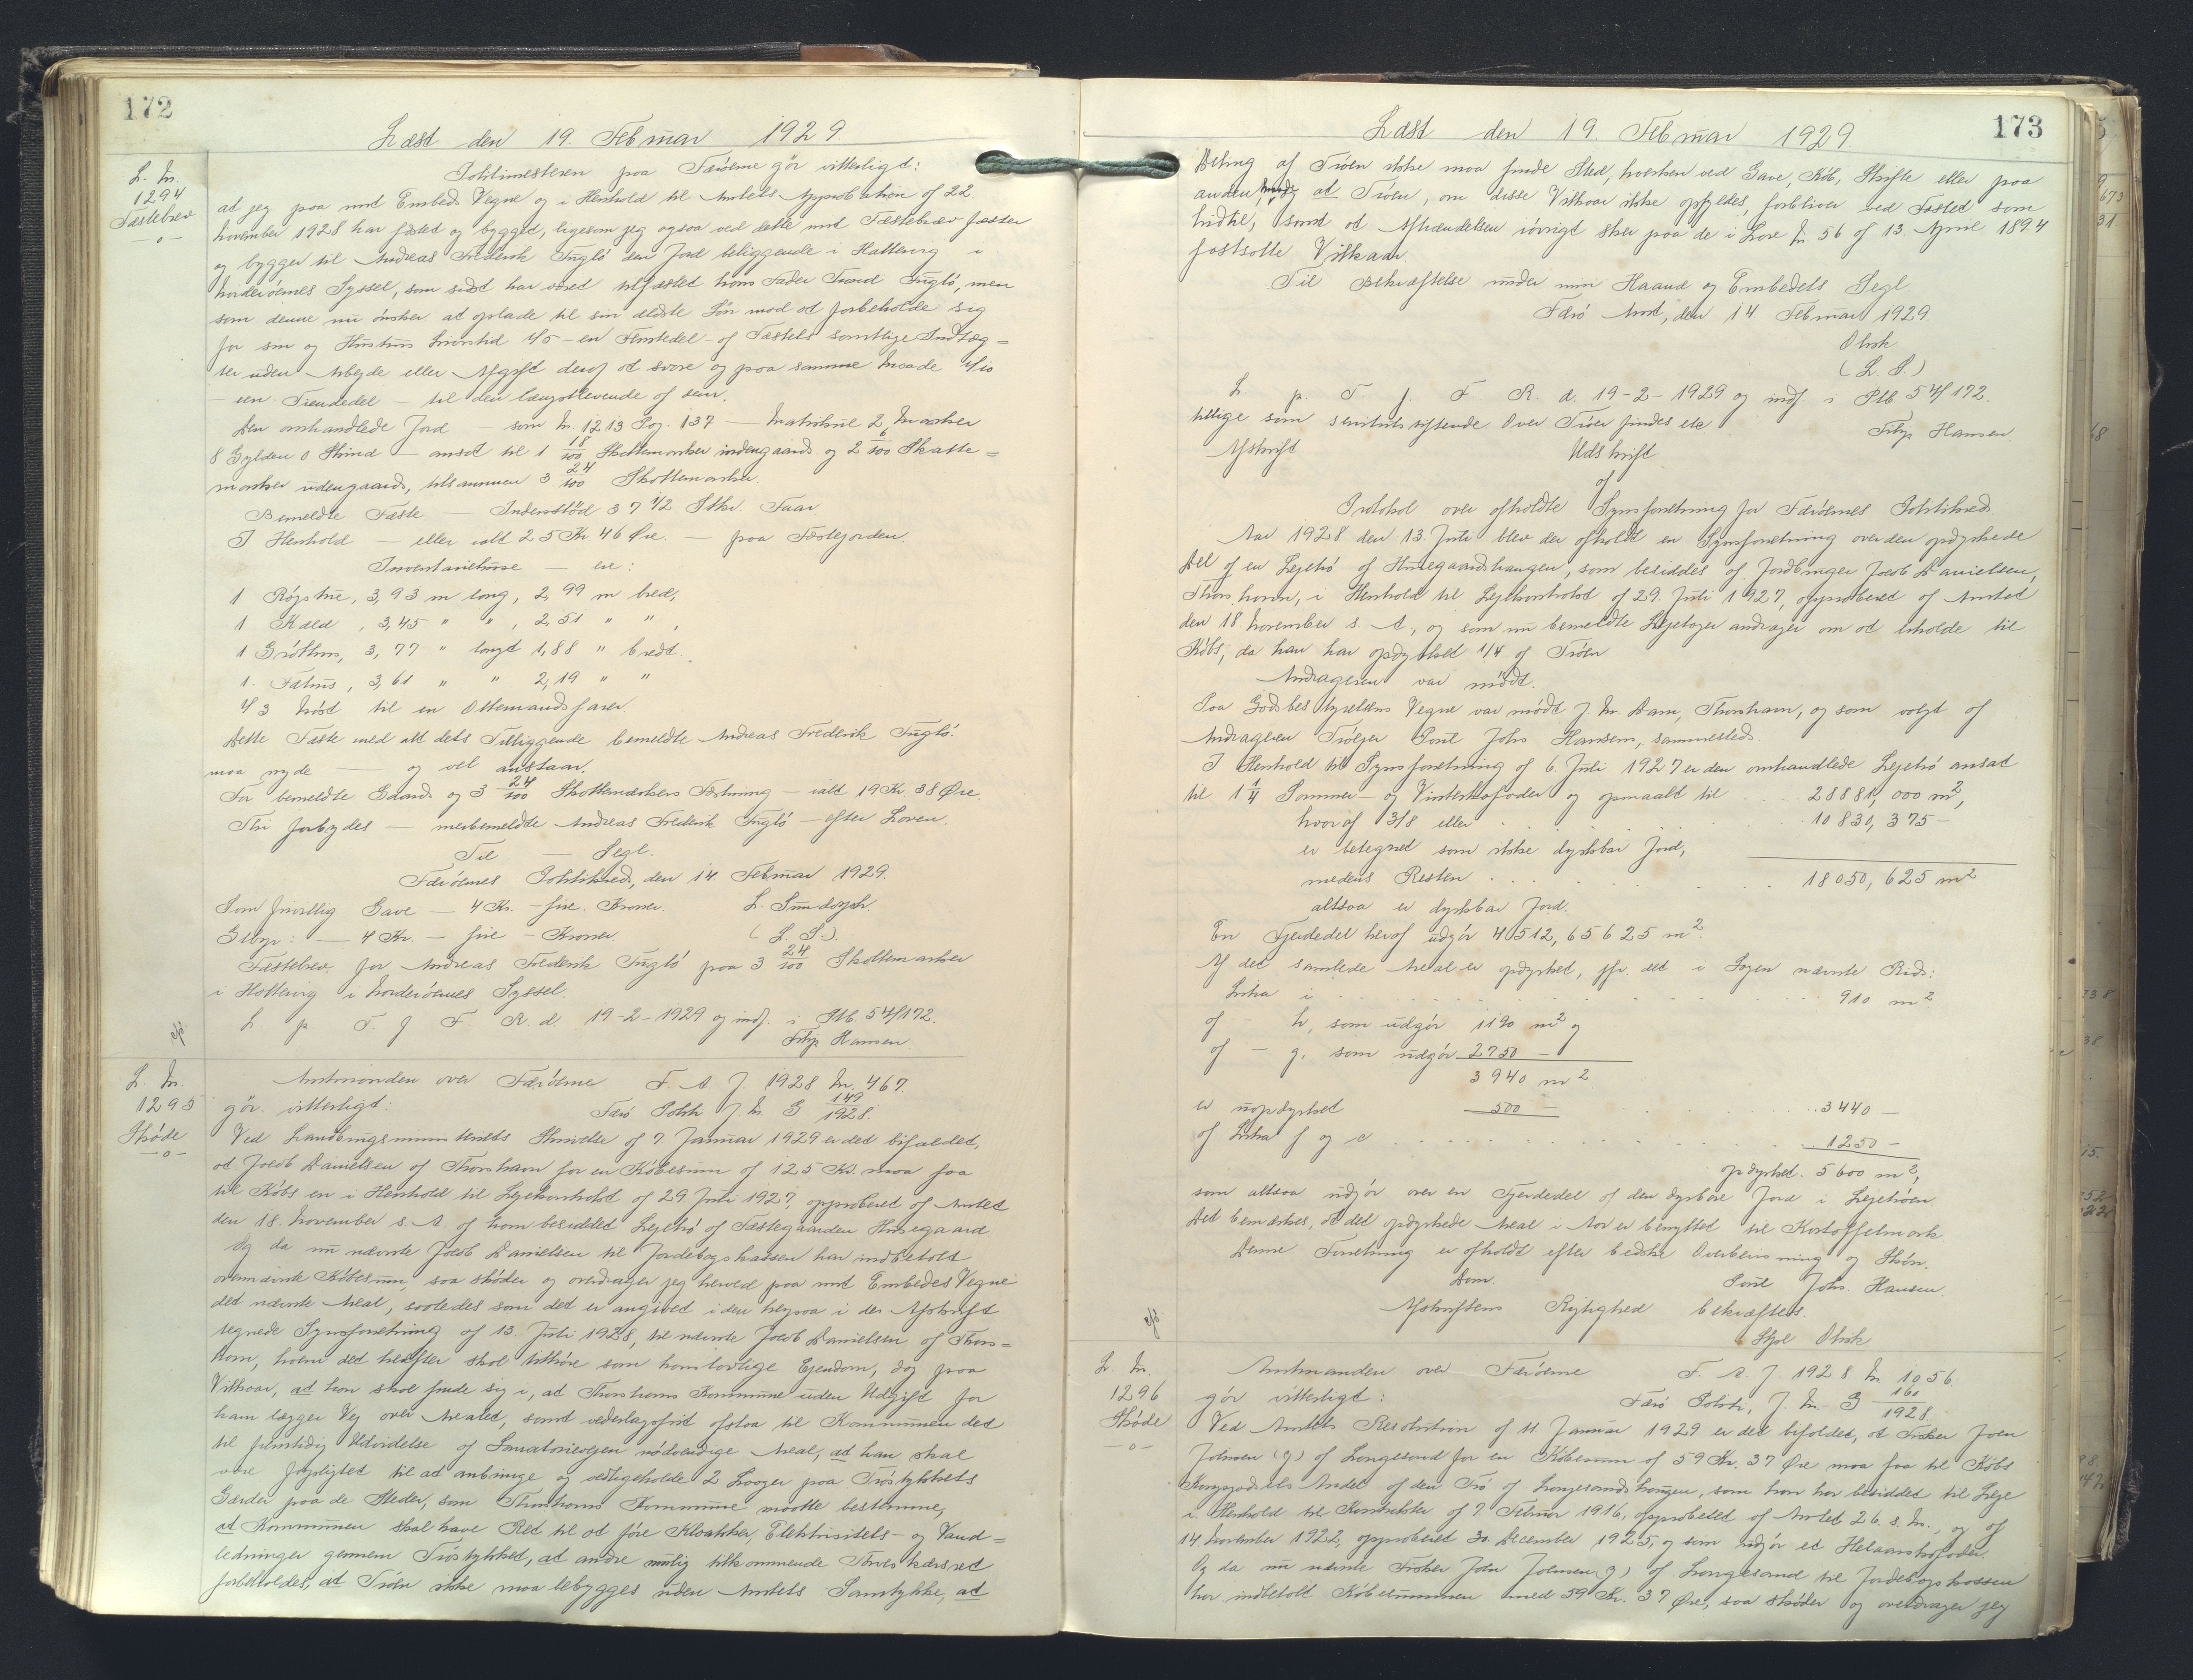 172
Læst den 19. Februar 1929.
L. Nr.
1294
Fæstebrev
—o—
Politimesteren paa Færøerne gör vitterligt:
at jeg paa mit Embeds Vegne og i Henhold til Amtets Approbation af 22.
November 1928 har fæsted og bygged, ligesom jeg ogsaa ved dette mit Fæstebrev fæster
og bygger til Andreas Frederik Fuglö den Jord beliggende i Hattervig i
Norderöernes Syssel, som sidst har været tilfæsted hans Fader Fuglö, men
som denne nu önsker at oplade til sin ældste Sön mod at forbeholde sig
for sin og Hustrus Livstid 1/5 – en Femtedel – af Fæstets samtlige Indtæg=
ter uden Arbejde eller Afgift deraf at svare og paa samme Maade 1/10
– een Tiendedel – til den længstlevende af dem.
Den omhandlede Jord — som Nr. 1213 Pag. 137 — Matrikul 2 Marker
8 Gylden 0 Skind — ansat til 1 18/100 Skattemarker indengaards og 2 6/100 Skatte=
marker udengaards, tilsammen 3 24/100 Skattemarker.
Bemeldte Fæste — Indenstöd 37 1/2 Stkr. Faar.
I Henhold — eller ialt 25 Kr 46 Øre. — paa Fæstejorden.
Inventariehuse — er:
1 Röjstue, 3,93 m lang, 2,99 m bred,
1 Kald , 3,45 " " , 2,51 " " ,
1 Gröthus, 3,77 " langt 1,88 " bredt.
1. Fæhus, 3,61 " " 2,19 " "
1/3 Nöst til en Ottemandsfarer.
Dette Fæste med alt dets Tilliggende bemeldte Andreas Frederik Fuglö.
maa nyde — og vel anstaar.
For bemeldte Gaards og 3 24/100 Skattemarkers Fæstning — ialt 19 Kr. 38 Øre.
Thi forbydes — merbemeldte Andreas Frederik Fuglö — efter Loven.
Til — Segl.
Færöernes Politikreds, den 14 Februar 1929.
Som frivillig Gave — 4 Kr. – fire Kroner. L.
Gebyr: — 4 Kr. – fire – Kroner. (L. S.)
Fæstebrev for Andreas Frederik Fuglö paa 3 24/100 Skattemarker
i Hattervig i Norderöernes Syssel.
L p T. J F R. d. 19-2-1929 og indf. i Ptb. 54/172.
Filip Hansen
L. Nr.
1295
Sköde
—o—
Amtmanden over Færöerne F. A J. 1928 Nr. 467.
gör vitterligt: Færö Politi J. Nr. G 149/1928.
Ved Landbrugsministeriets Skrivelse af 7 Januar 1929 er det bifaldet,
at Jacob Danielsen af Thorshavn for en Köbesum af 125 Kr. maa faa
til Köbs en i Henhold til Lejekontrakt af 29 Juli 1927, approberet af Amtet
den 18. November s. A. af ham besiddet Lejetrö af Fæstegaarden Husegaard.
Og da nu nævnte Jacob Danielsen til Jordebogskassen har indbetalt
ovennævnte Köbesum, saa sköder og overdrager jeg herved paa mit Embedes Vegne
det nævnte Areal, saaledes som det er angivet i den herpaa i Afskrift
tegnede Synsforretning af 13. Juli 1928, til nævnte Jacob Danielsen af Thors=
havn, hvem det herefter skal tilhöre som hans lovlige Ejendom, dog paa
Vilkaar, at han skal finde sig i, at Thorshavns Kommune uden Udgift for
ham lægger Vej over Arealet, samt vederlagsfrit afstaa til Kommunen det
til fremtidig Udvidelse af Sanatorievejen nödvendige Areal, at han skal
være forpligtet til at anbringe og vedligeholde 2 Laager paa Tröstykkets
Gærder paa de Steder, som Thorshavns Kommune maatte bestemme,
at Kommunen skal have Ret til at före Kloakker, Elektricitets- og Vand=
ledninger gennem Tröstykket, at andre mulig tilkommende
forbeholdes, at Tröen ikke maa bebygges uden Amtets Samtykke, at
173
Læst den 19. Februar 1929.
Deling af Tröen ikke maa finde Sted, hverken ved Gave, Köb, Skifte eller paa
anden Maade, og at Tröen, om disse Vilkaar ikke opfyldes, forbliver ved Fæstet som
hidtil, samt at Afhændelsen iövrigt sker paa de i Lov Nr 56 af 13. April 1894
fastsatte Vilkaar.
Til Bekræftelse under min Haand og Embedets Segl.
Færö Amt, den 14 Februar 1929.
(L. S.)
L p. T J. F R. d. 19-2-1929 og indf. i Ptb 54/172.
tillige som servitutstiftende. Over Tröen findes etc
Filip Hansen
Afskrift Udskrift
af
Protokol over afholdte Synsforretning for Færöernes Politikreds
Aar 1928 den 13. Juli blev der afholdt en Synsforretning over den opdyrkede
Del af en Lejetrö af Husegaardshaugen, som besiddes af Jordbruger Jacob Danielsen,
Thorshavn, i Henhold til Lejekontrakt af 29. Juli 1927, approberet af Amtet
den 18. November s. A., og som nu bemeldte Lejetager andrager om at erholde til
Köbs, da han har opdyrket 1/4 af Tröen
Andrageren var mödt.
Paa Godsbestyrelsens Vegne var mödt J. M. Dam, Thorshavn, og som valgt af
Andrageren Tröejer Poul Johs Hansen, sammesteds.
I Henhold til Synsforretning af 6. Juli 1927 er den omhandlede Lejetrö ansat
til 1 1/4 Sommer- og Vinterkofoder og opmaalt til . . . 28881,000 m²,
hvoraf 3/8 eller . . . 10830,375 –
er betegnet som ikke dyrkbar Jord,
medens Resten . . . 18050,625 m²
altsaa er dyrkbar Jord.
En Fjerdedel heraf udgör 4512,65625 m².
Af det samlede Areal er opdyrket, jfr. det i Sagen nævnte Rids:
Litra i . . . 910 m²
af – h, som udgör 1190 m² og
af – g, som udgör 2750 –
3940 m²
er uopdyrket 500 – . . . 3440 –
af Litra f og e . . . 1250 –
opdyrket. 5600 m²,
som altsaa udgör over en Fjerdedel af den dyrkbare Jord i Lejetröen
Det bemærkes, at det opdyrkede Areal i Aar er benyttet til Kartoffelmark
Denne Forretning er afholdt efter bedste Overbevisning og Skön.
Dam. Poul Johs. Hansen.
Afskriftens Rigtighed bekræftes.
L. Nr.
1296
Sköde
—o—
Amtmanden over Færöerne F. A. J. 1928 Nr. 1056.
gör vitterligt: Færö Politi, J. Nr. G 161/1928.
Ved Amtets Resolution af 11 Januar 1929 er det bifaldet, at Fisker Joen
Joensen (g) af Langesand for en Köbesum af 59 Kr. 37 Øre maa faa til Köbs
Kongsgodsets Andel af den Trö af Langesandshaugen, som han har besiddet til Leje
i Henhold til Kontrakter af 7. Februar 1916, approberet af Amtet 26. s. M., og af
14. November 1922, approberet 30. December 1925, og som udgör et Helaarskofoder.
Og da nu nævnte Fisker Joen Joensen (g) af Langesand til Jordebogskassen
har indbetalt Köbesummen med 59 Kr. 37 Øre, saa sköder og overdrager jeg